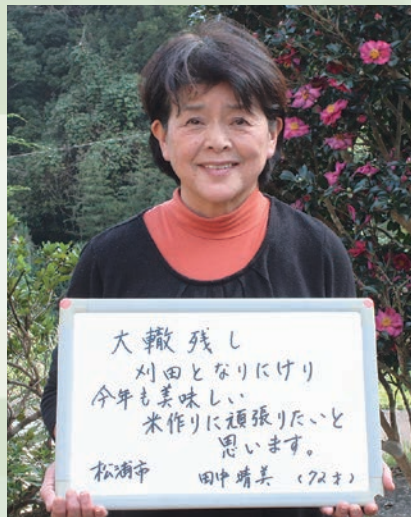 大轍残し
刈田となりにけり
今年も美味しい
米作りに頑張りたいと
思います。
松浦市 田中晴美 (72才)